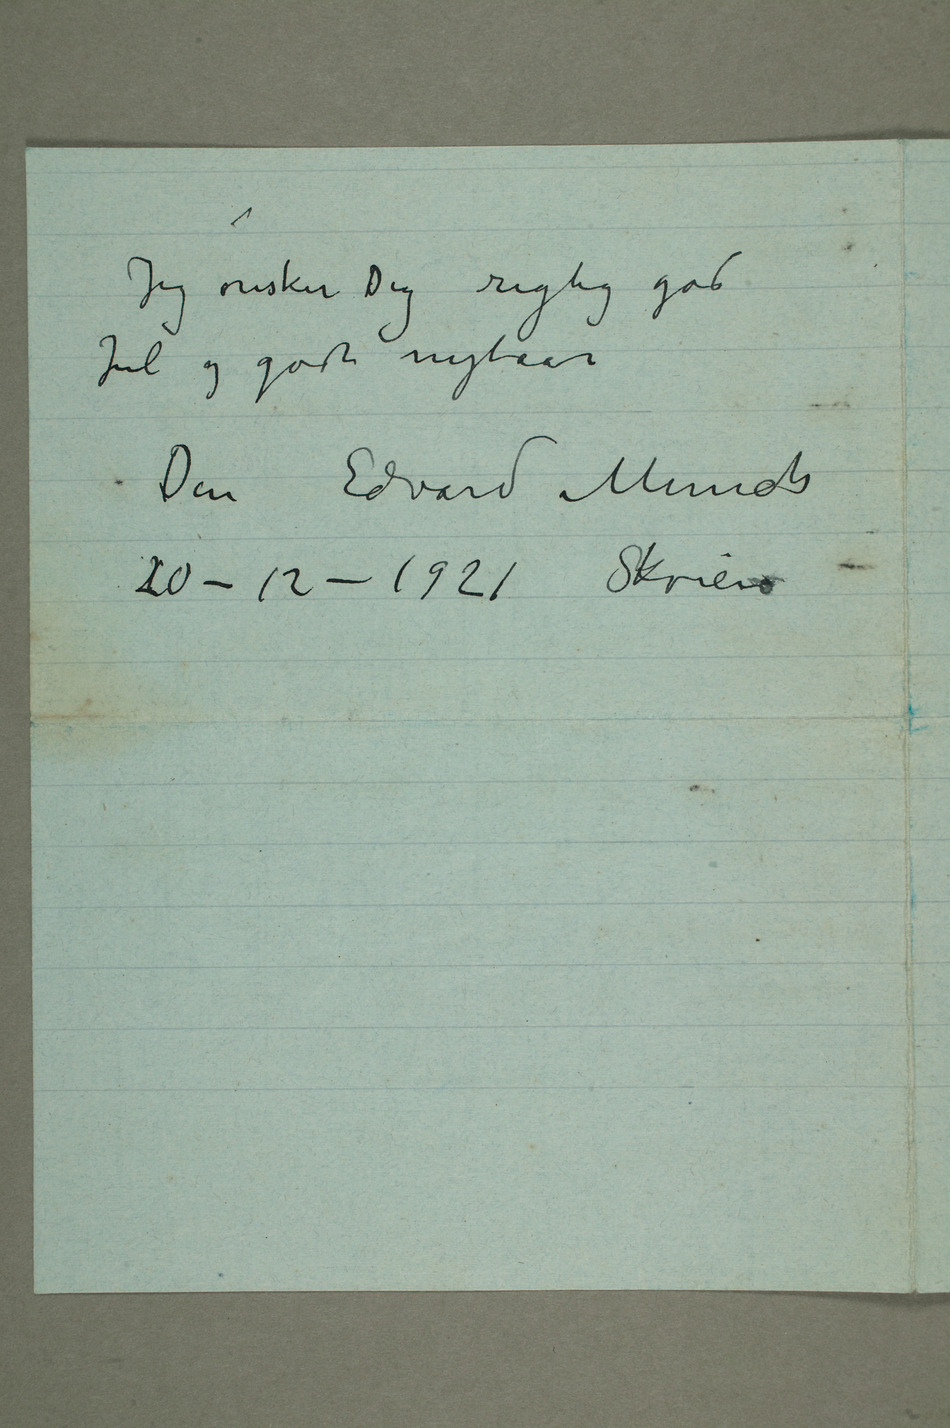 Jeg ønsker Dig rigtig god
Jul og godt nytaar
Din Edvard Munch
20 – 12 – 1921 Skrien